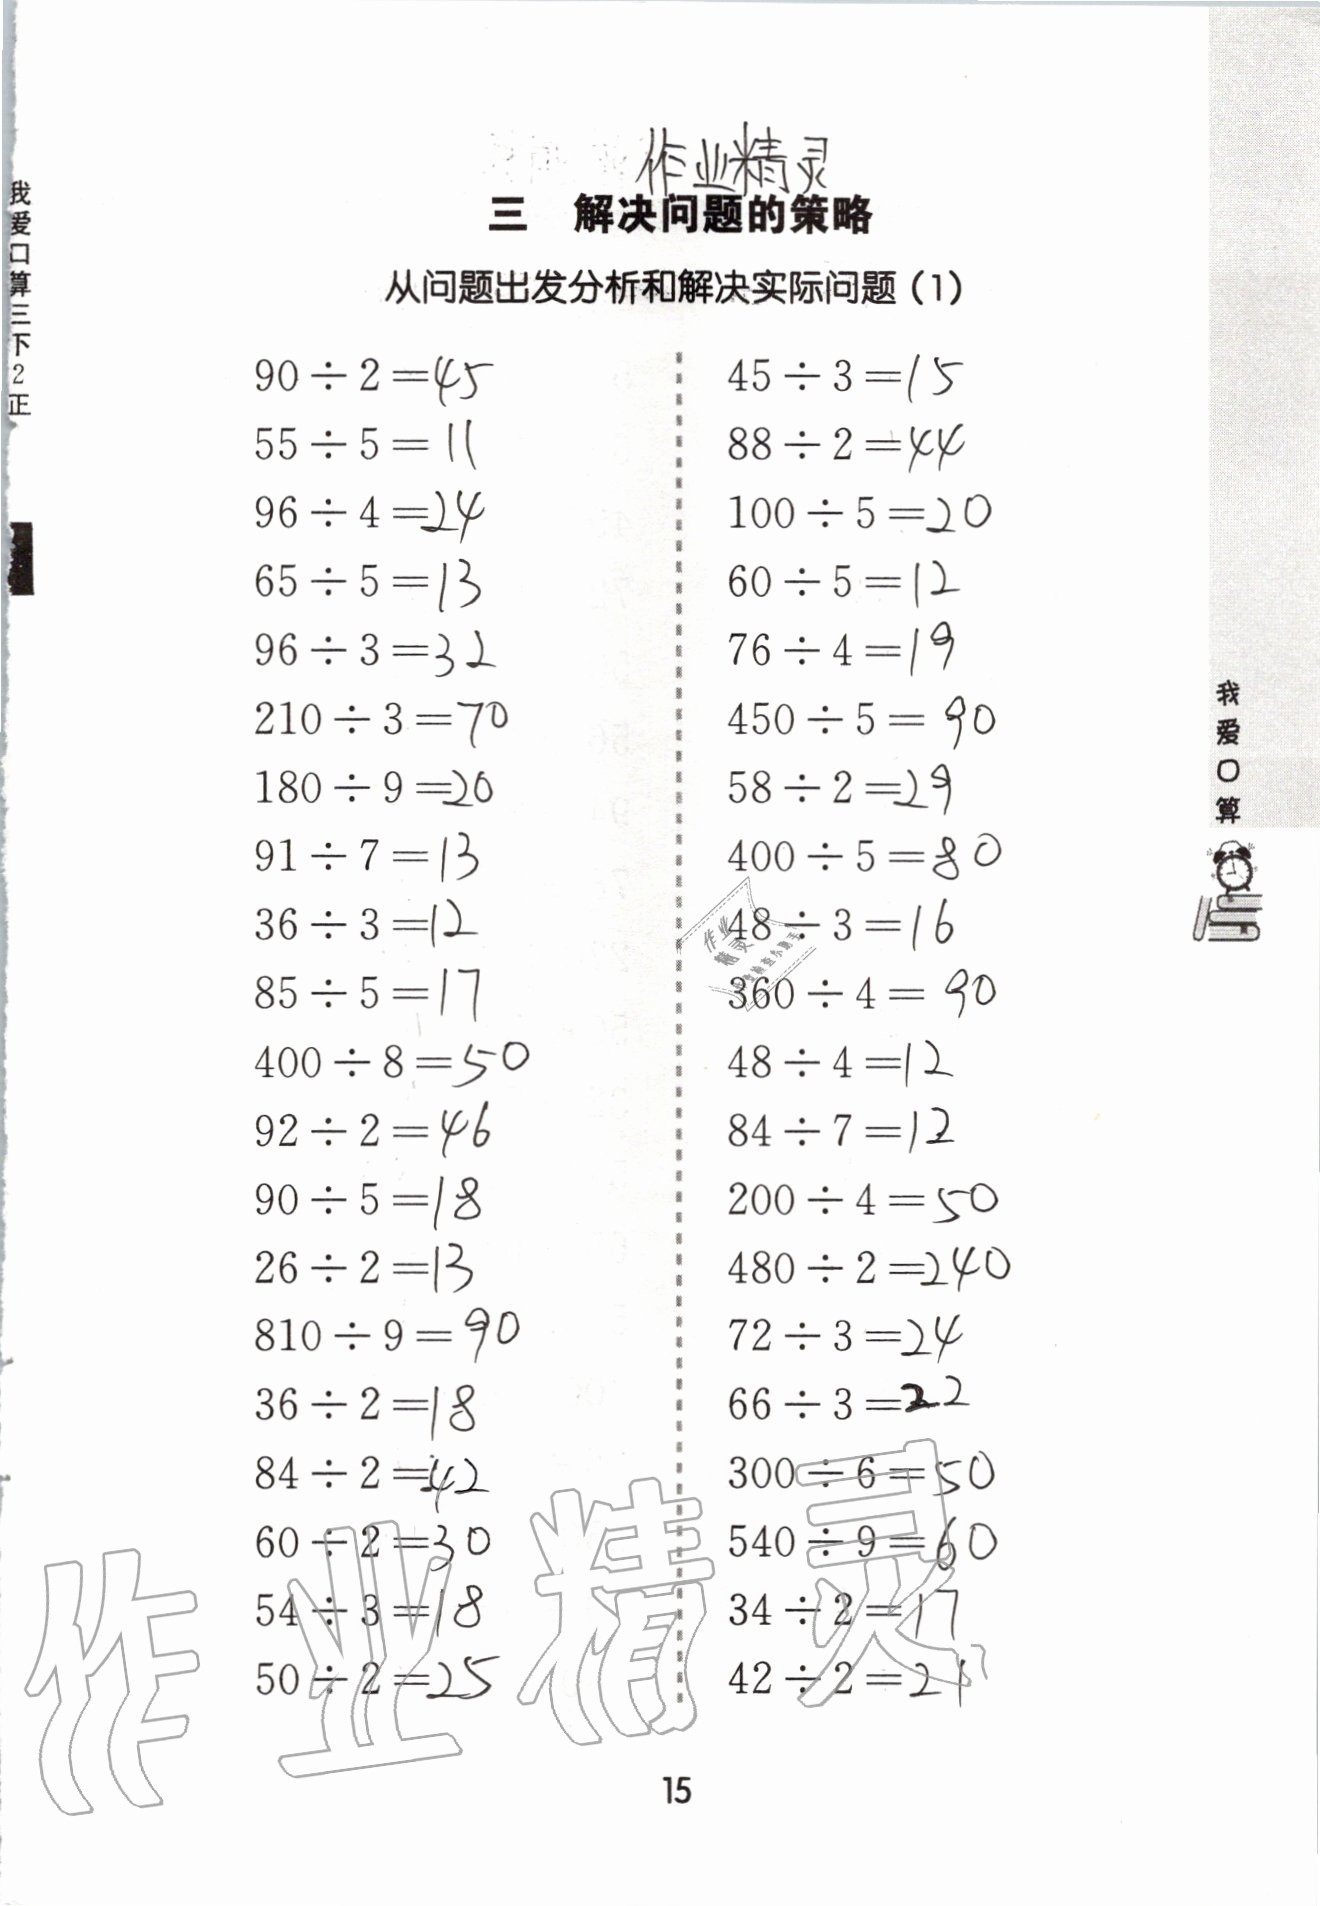 作业精灵
三 解决问题的策略
从问题出发分析和解决实际问题(1)
90÷2=45
55÷5=11
96÷4=24
65÷5=13
96÷3=32
210÷3=70
180÷9=20
91÷7=13
36÷3=12
85÷5=17
400÷8=50
92÷2=46
90÷5=18
26÷2=13
810÷9=90
36÷2=18
84÷2=42
60÷2=30
54÷3=18
50÷2=25
45÷3=15
88÷2=44
100÷5=20
60÷5=12
76÷4=19
450÷5=90
58÷2=29
400÷5=80
48÷3=16
360÷4=90
48÷4=12
84÷7=12
200÷4=50
480÷2=240
72÷3=24
66÷3=22
300÷6=50
540÷9=60
34÷2=17
42÷2=21
15
我爱口算三下2正
我爱口算
作业精灵
作业
精灵